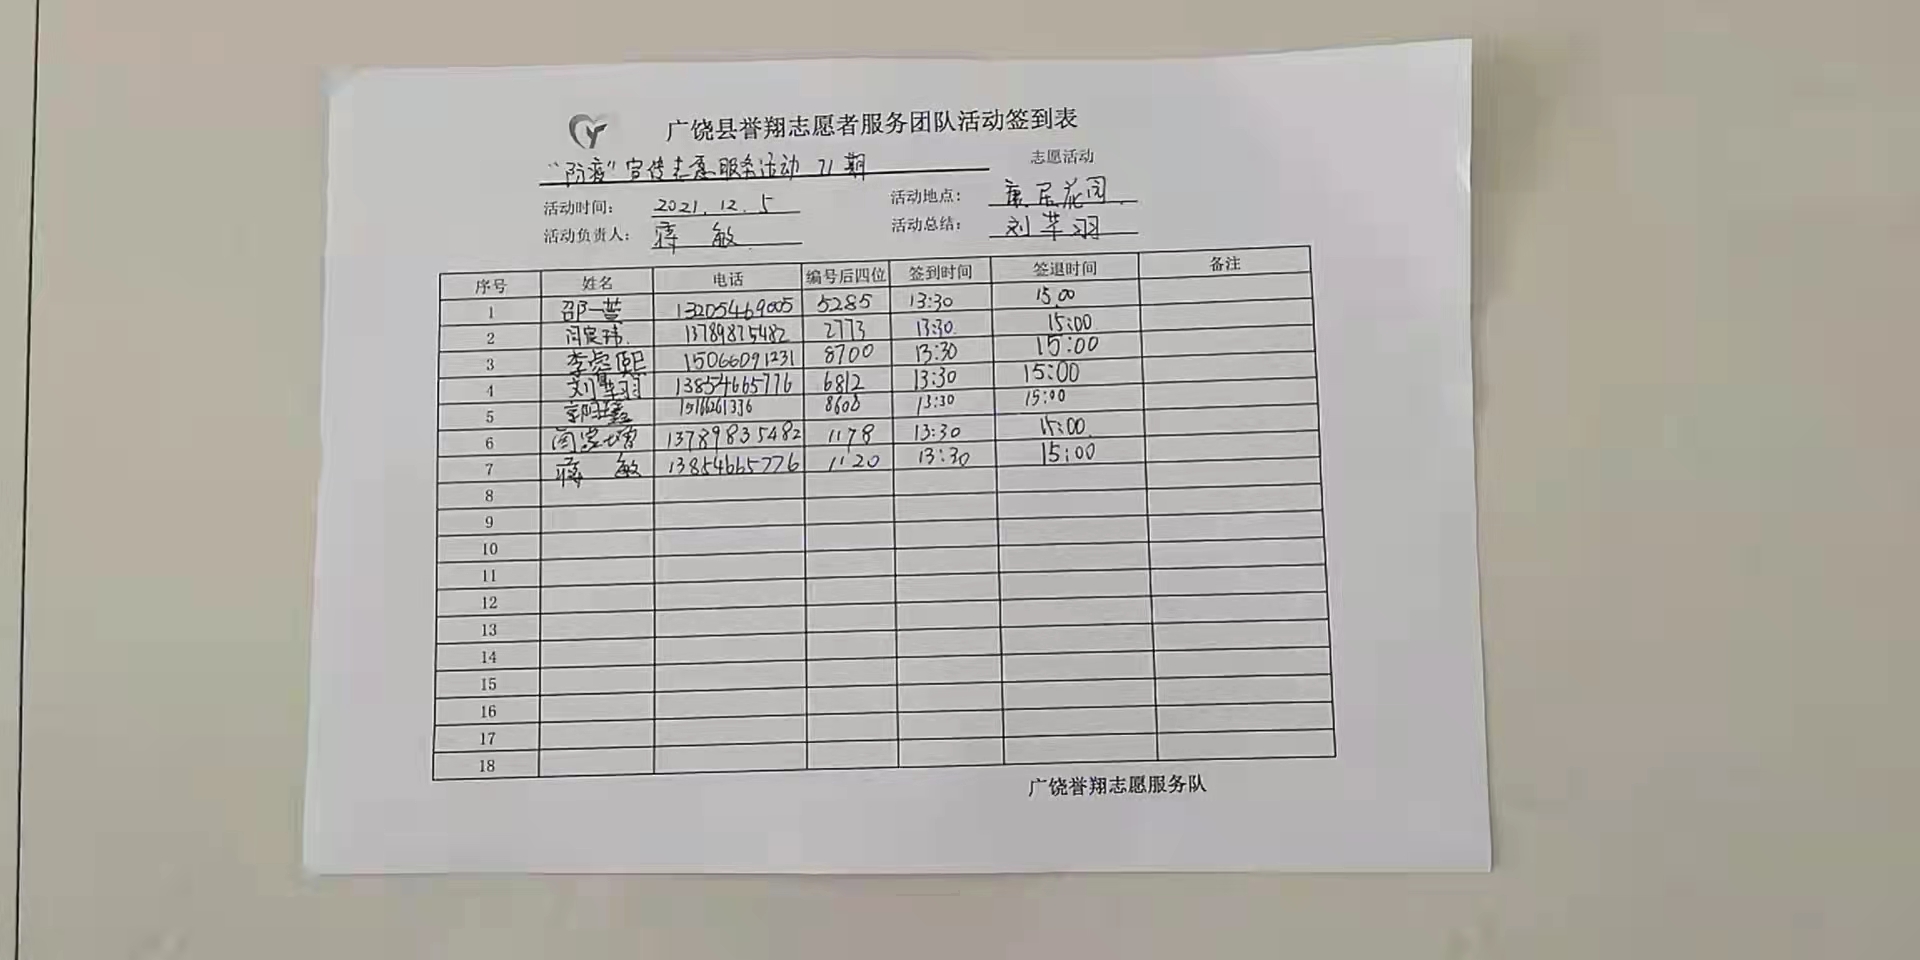 广饶县誉翔志愿者服务团队活动签到表
"防疫"宣传志愿服务活动 71期 志愿活动
活动时间: 2021.12.5 活动地点: 康居花园
活动负责人: 蒋敏 活动总结: 刘芊羽
序号 姓名 电话 编号后四位 签到时间 签退时间 备注
1 邵一萱 13205469005 5285 13:30 15.00
2 闫宸玮 2773 13:30 15:00
3 李睿熙 15066091231 8700 13:30 15:00
4 刘芊羽 13854665776 6812 13:30 15:00
5 8608 13:30 15:00
6 13789835482 1178 13:30 15:00
7 蒋敏 13854665776 1120 13:30 15:00
8
9
10
11
12
13
14
15
16
17
18
广饶誉翔志愿服务队